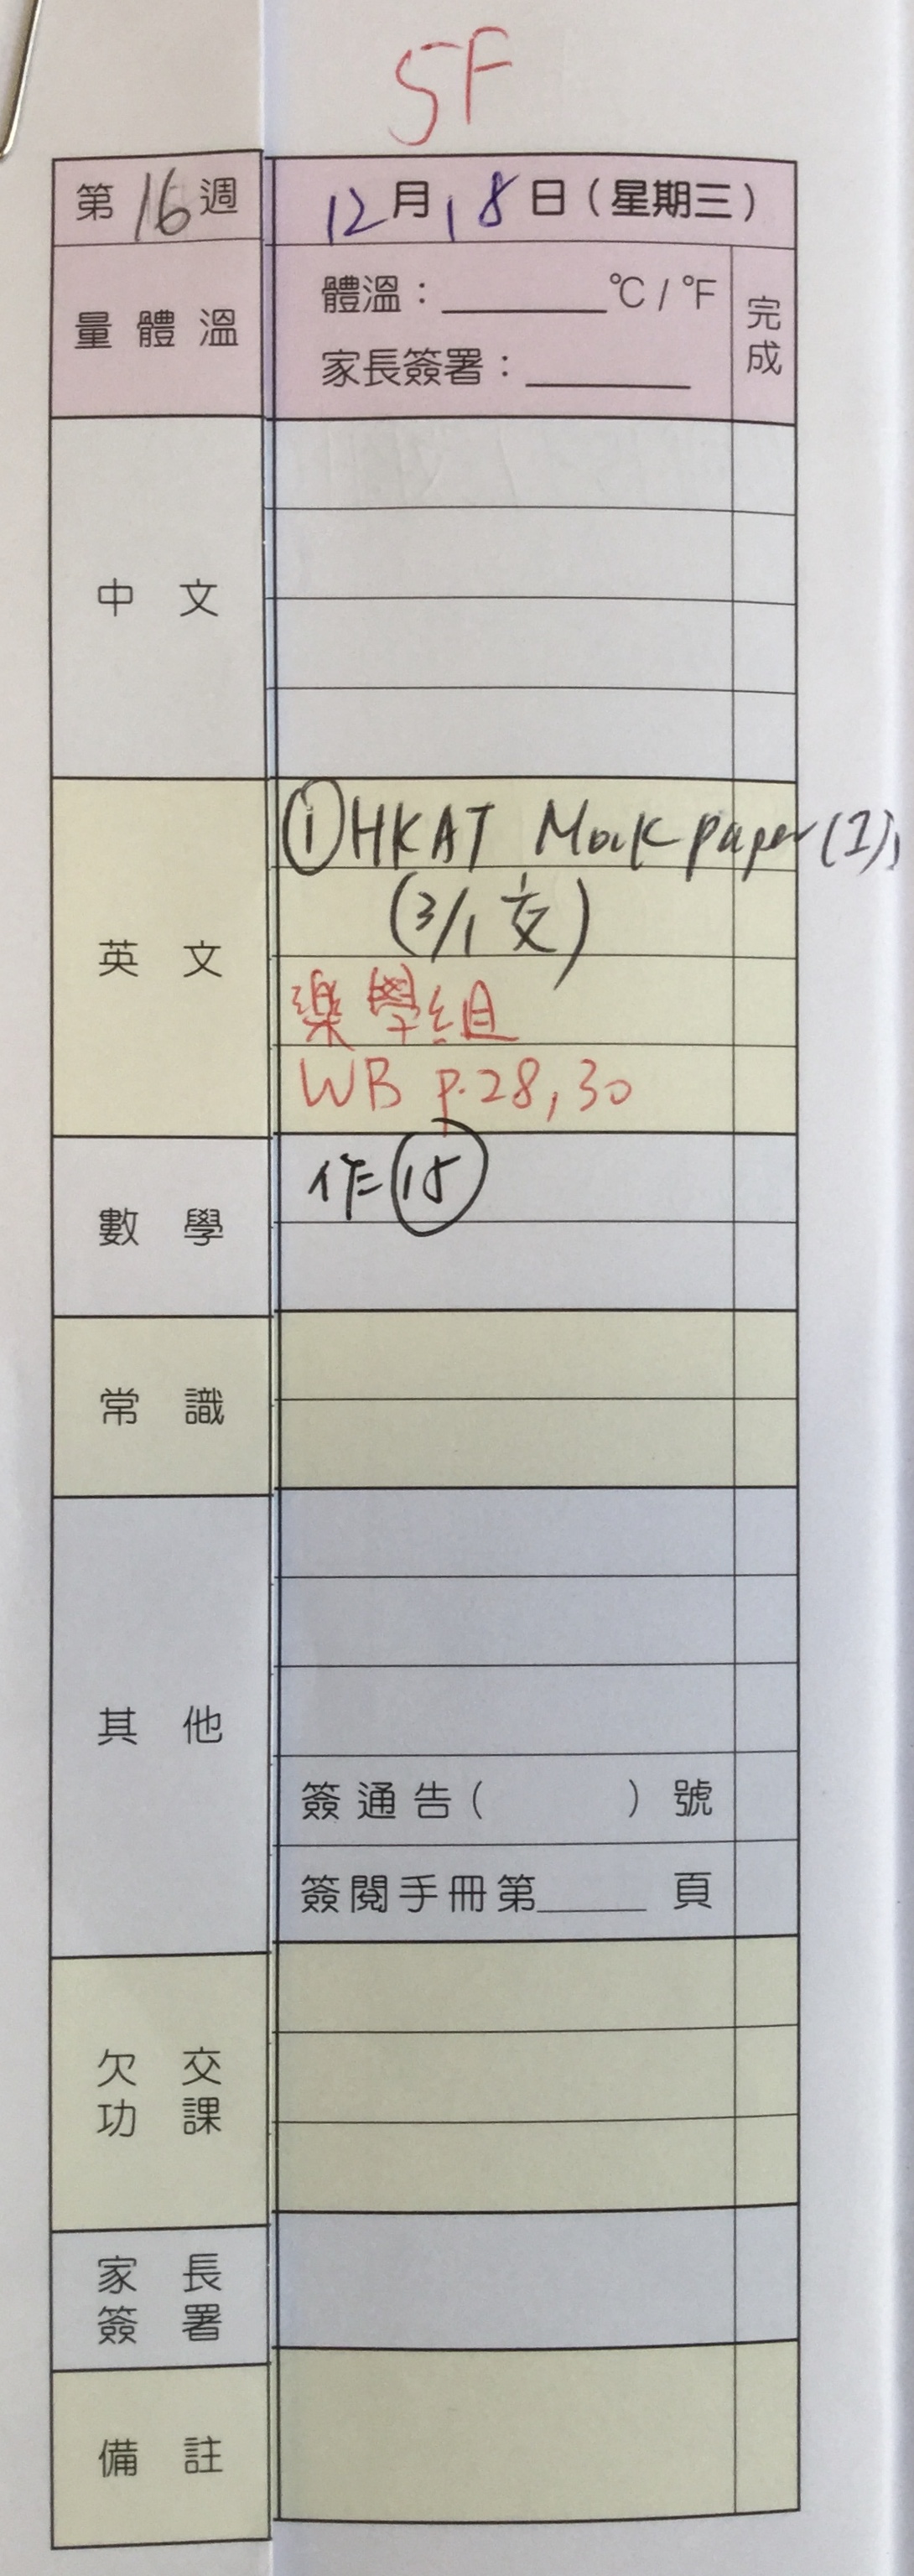 5F
第16週 12月18日(星期三)
量體溫 體溫:______°C / °F 完成
家長簽署:______
中文
英文 ①HKAT Mock paper (1),
(3/1 交)
樂學組
WB p.28,30
數學 作⑮
常識
其他
簽通告( )號
簽閱手冊第_____頁
欠交功課
家長簽署
備註